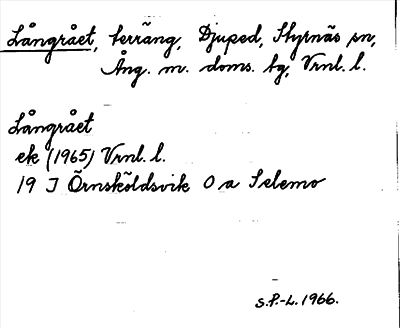 Långrået, terräng, Djuped, Styrnäs sn,
Ång. m. doms. tg, Vrnl. l.
Långrået
ek (1965) Vrnl. l.
19 J Örnsköldsvik 0 a Selemo
S.P.-L. 1966.